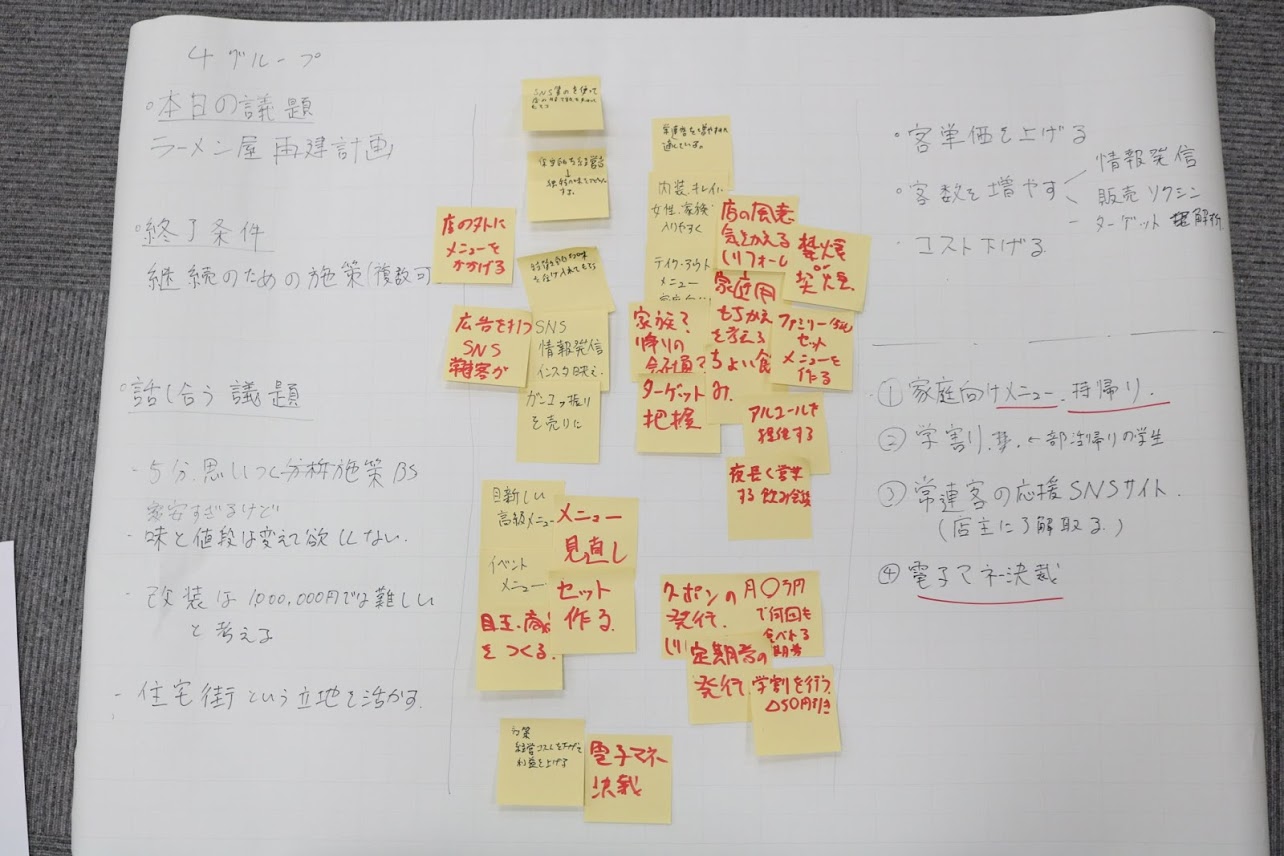 4グループ
・本日の議題
ラーメン屋 再建計画
・終了条件
継続のための施策(複数可
・話し合う議題
・5分.思いつく分析施策BS
・味と値段は変えて欲しくない.
・改装は1,000,000円では難しい
と考える
・住宅街という立地を活かす.
店の外に
メニューを
かかげる
広告を打つ
SNS
SNS
情報発信
インスタ映え.
を売りに
内装.キレイに
女性.家族
入りやすく
テイクアウト
メニュー
店の風意
気をかえる
(リフォーム
禁煙
or
家庭用
もちかえ
を考える
ちょい飲
み.
ファミリー
セット
メニューを
作る
家族?
帰りの
会社員?
ターゲット
把握
アルコールを
提供する
夜長く営業
する
目新しい
高級メニュー
イベント
メニュー
目玉.商品
をつくる.
メニュー
見直し
セット
作る.
クーポンの
発行.
月〇万円
で何回も
食べれる
定期券の
発行
学割を行う.
△50円引き
経営コストを下げて
利益を上げる
電子マネー
決裁
・客単価を上げる
・客数を増やす
情報発信
販売ソクシン
ターゲット 解析
・コスト下げる
① 家庭向けメニュー.持帰り.
② 学割 ← 部活帰りの学生
③ 常連客の応援SNSサイト.
(店主に了解取る.)
④ 電子マネー決裁